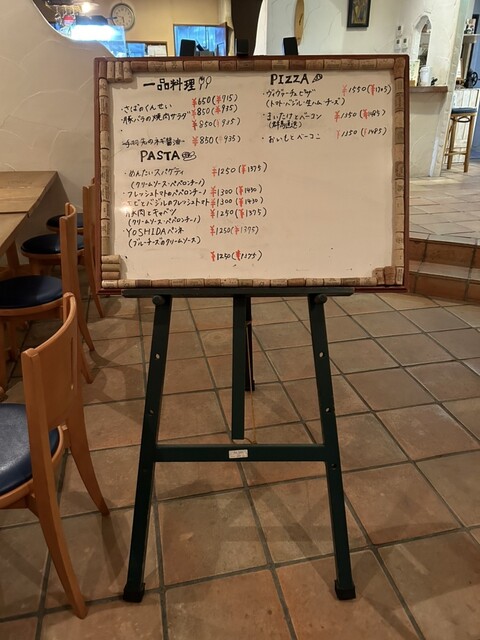 一品料理
・さばのくんせい ¥650(¥715)
・豚バラの焼肉サラダ ¥850(¥935)
¥850(¥935)
ネギ醤油 ¥850(¥935)
PASTA
・めんたいスパゲティ ¥1250(¥1375)
(クリームソース・ペペロンチーノ)
・フレッシュトマトのペペロンチーノ ¥1300(¥1430)
・えびとバジルのフレッシュトマト ¥1300(¥1430)
・豚肉とキャベツ ¥1250(¥1375)
(クリームソース・ペペロンチーノ)
・YOSHIDAペンネ ¥1250(¥1375)
(ブルーチーズのクリームソース)
¥1250(¥1375)
PIZZA
・ヴィヴァーチェピザ ¥1550
(トマト・バジル・生ハム・チーズ)
・まいたけとベーコン ¥1350(¥1485)
・おいもとベーコン ¥1350(¥1485)